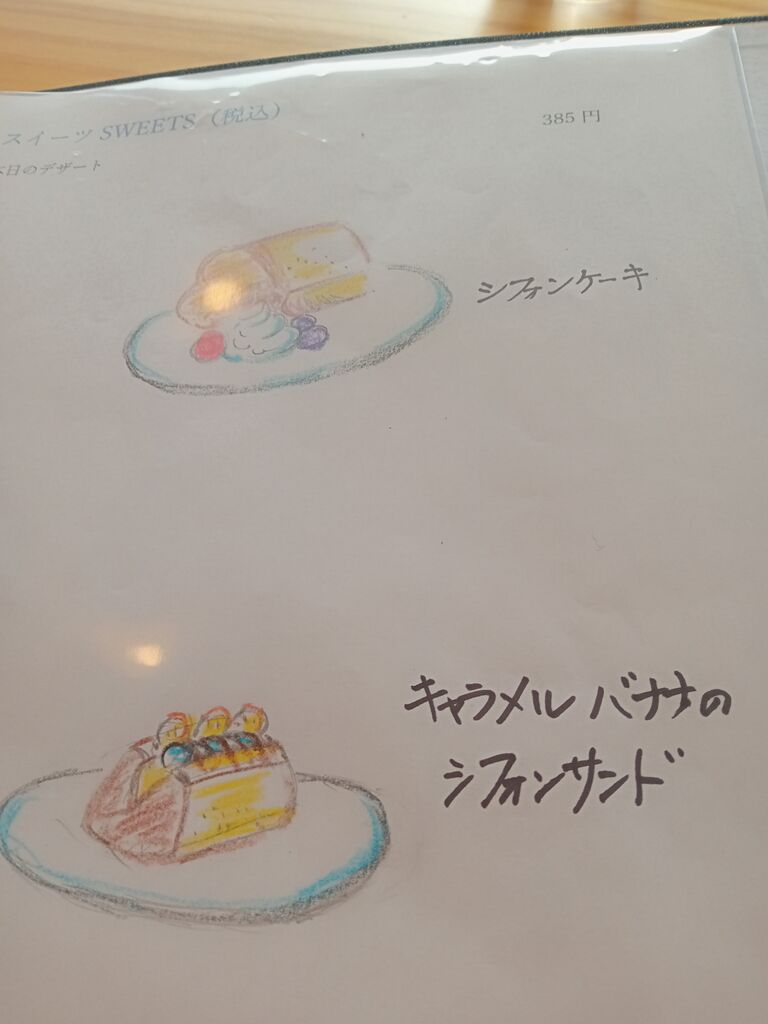 スイーツ SWEETS（税込）
385 円
本日のデザート
シフォンケーキ
キャラメル バナナの
シフォンサンド